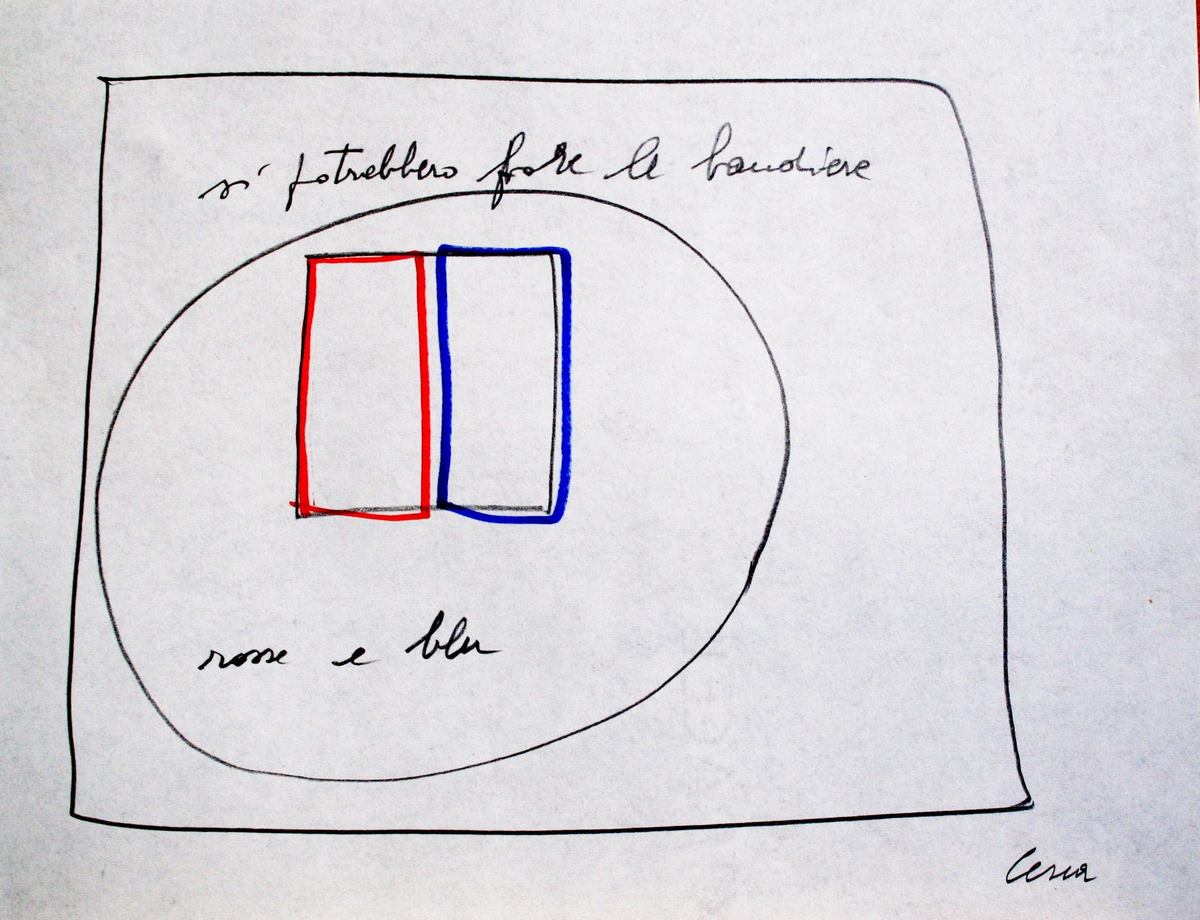 si potrebbero fare le bandiere
rosse e blu